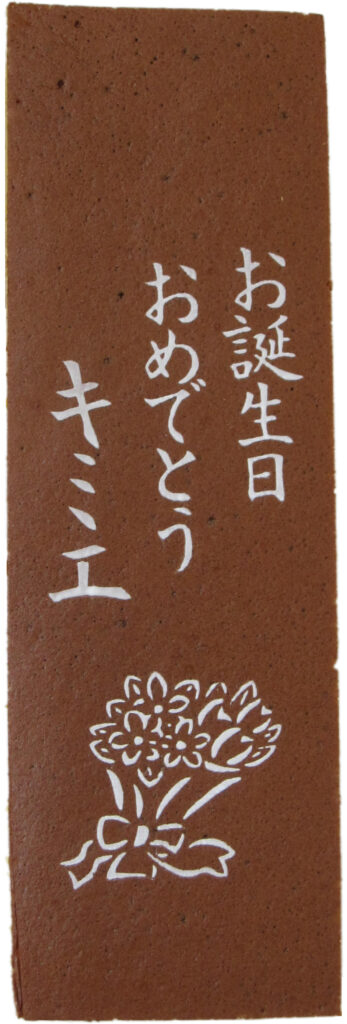 お誕生日
おめでとう
キミエ